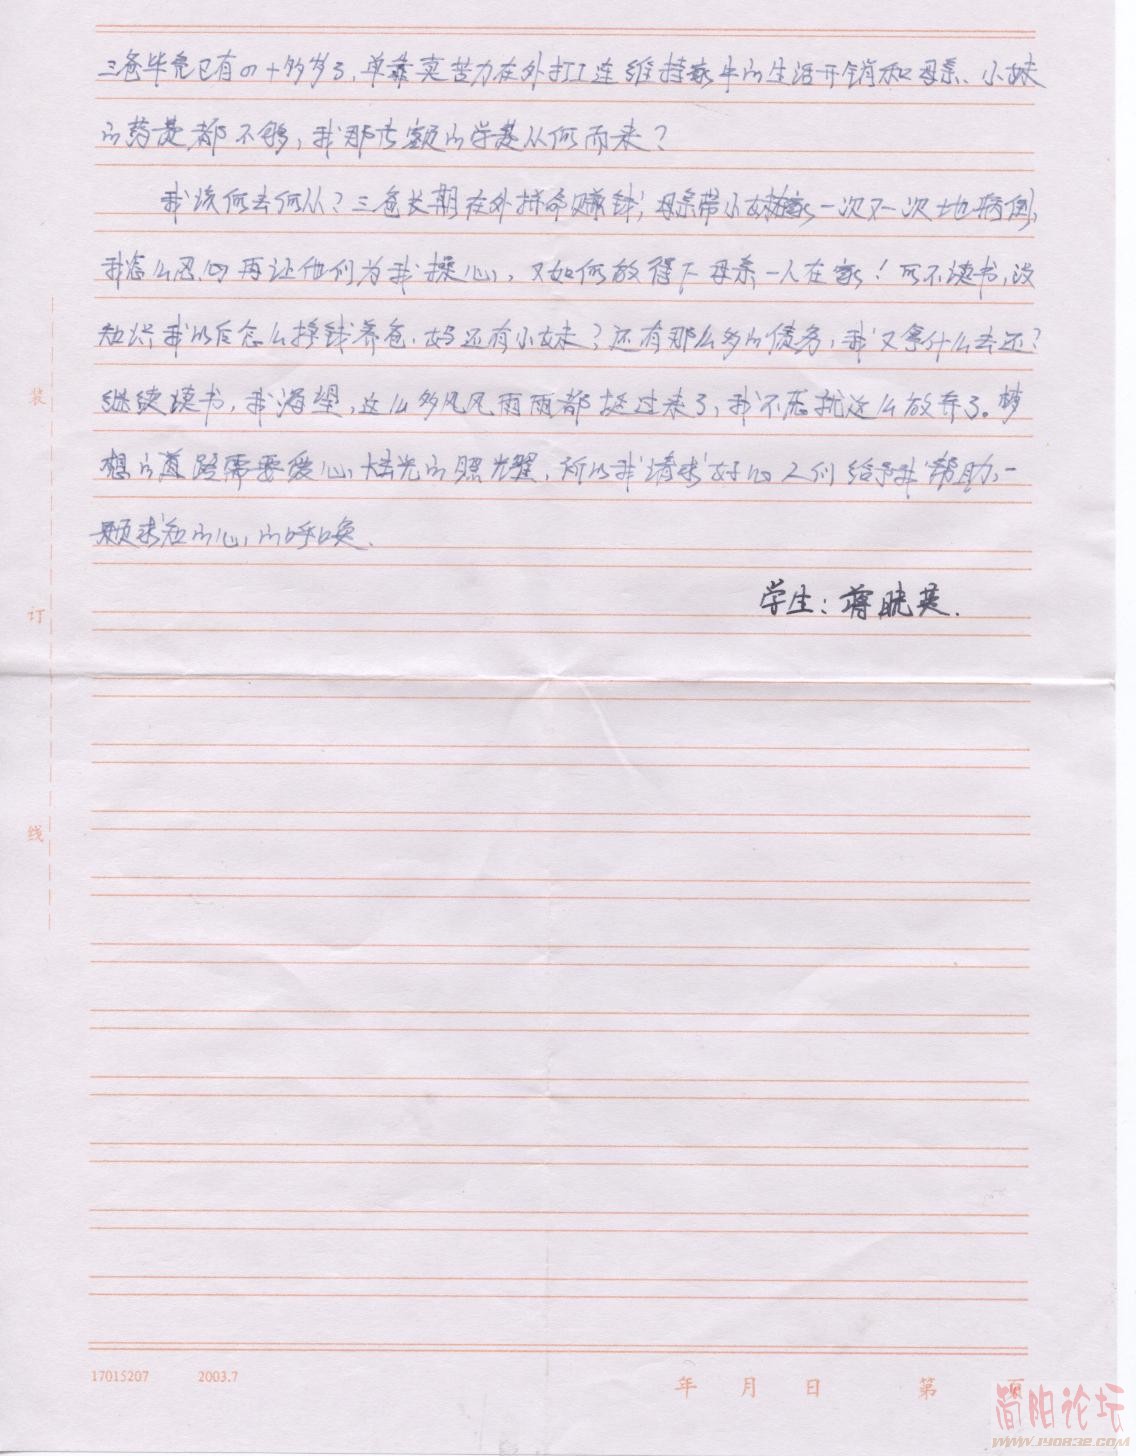 三爸毕竟已有四十多岁了，单靠卖苦力在外打工连维持家中的生活开销和母亲、小妹
的药费都不够，我那巨额的学费从何而来？
我该何去何从？三爸长期在外拼命赚钱，母亲带小妹在家一次又一次地病倒，
我怎么忍心再让他们为我操心，又如何放得下母亲一人在家！可不读书，没
知识，我以后怎么挣钱养爸、妈还有小妹？还有那么多的债务，我又拿什么去还？
继续读书，我渴望，这么多风风雨雨都挺过来了，我不愿就这么放弃了。梦
想的道路需要爱心阳光的照耀，所以我请求好心人们给予我帮助，一
颗求知的心的呼唤。
学生：蒋晓英.
装
订
线
17015207 2003.7
年 月 日 第 页
简阳论坛
WWW.JY0832.COM